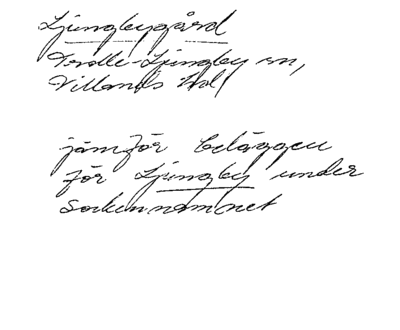 Ljungbygård
Trolle-Ljungby sn,
Villands hd
jämför beläggen
för Ljungby under
sockennamnet